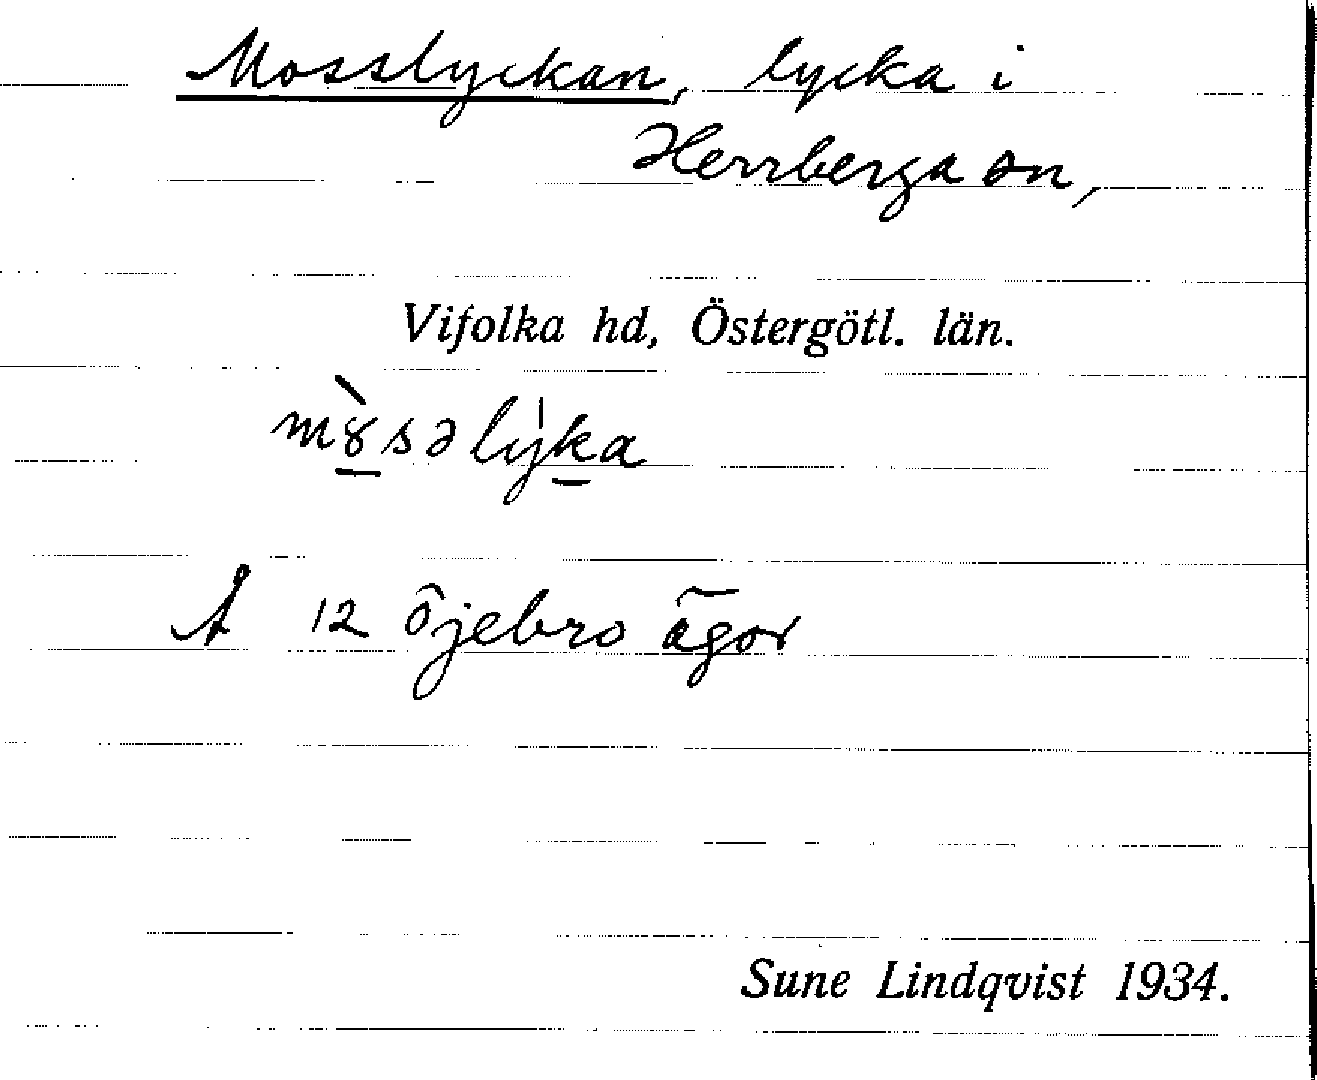 Mosslyckan, lycka i
Herrberga sn,
Vifolka hd, Östergötl. län.
m&#x300;ȣsəlyka
Å 12 Öjebro ägor
Sune Lindqvist 1934.